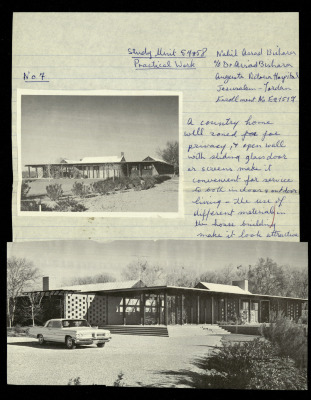 Study Unit 57+58
Practical Work
Nabil Awad Bishara
℅ Dr Awad Bishara
Augusta Victoria Hospital
Jerusalem - Jordan
Enrollment No
No. 7
A country home
well zoned for
privacy, open wall
with sliding glass door
or screens make it
convenient for service
to both indoor & outdoor
living - The use of
different material in
this house building
make it look attractive